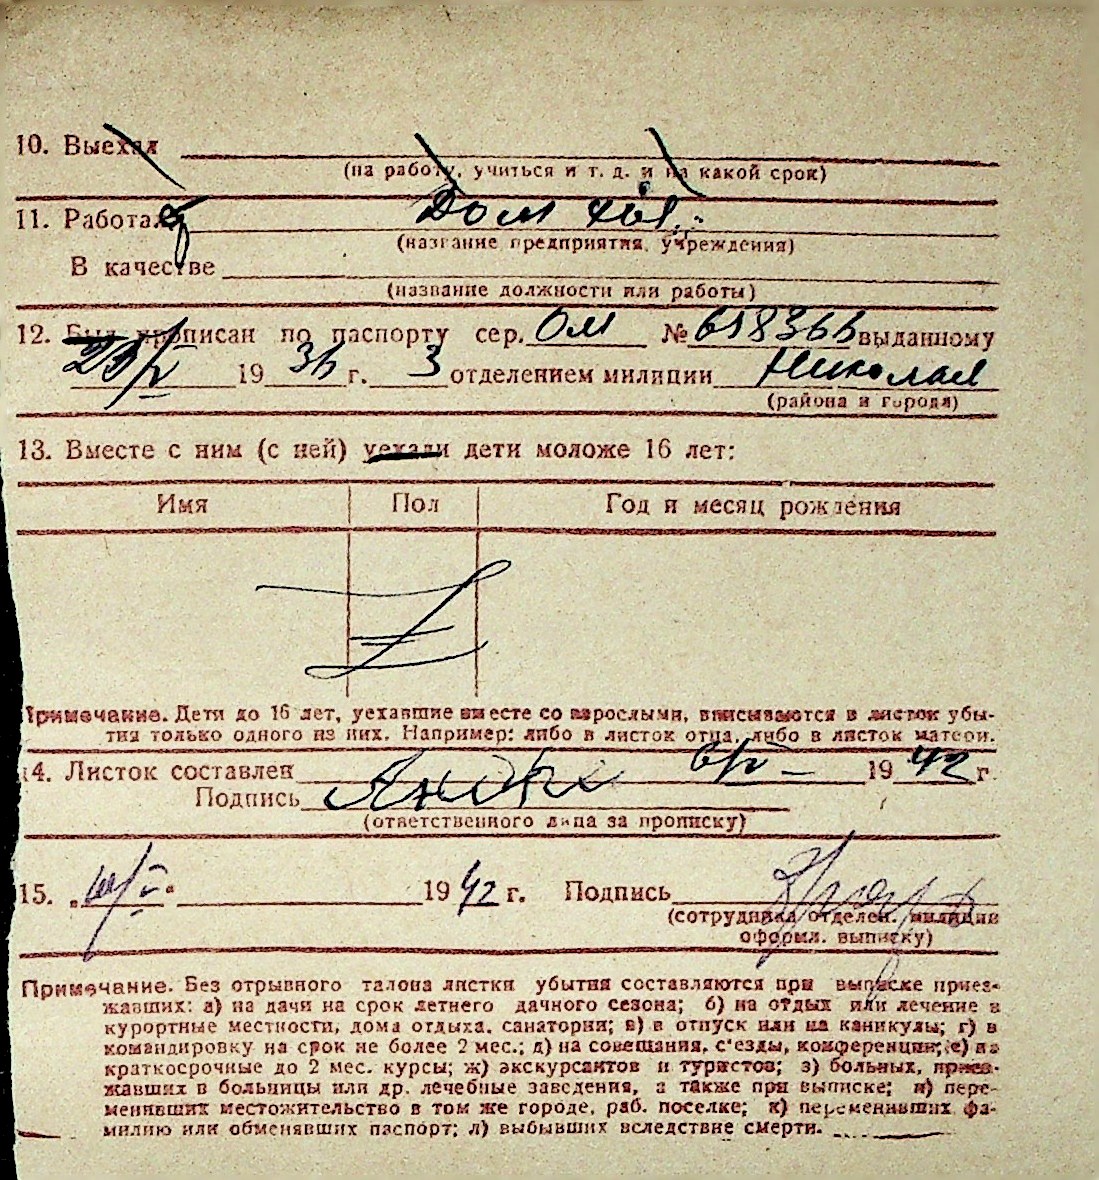 10. Выехал
(на работу, учиться и т. д. и на какой срок)
11. Работал Дом хоз.
(название предприятия, учреждения)
В качестве
(название должности или работы)
12. Был прописан по паспорту сер. ОМ № 618366 выданному
23/V 1936 г. 3 отделением милиции Николаев
(района и города)
13. Вместе с ним (с ней) уехали дети моложе 16 лет:
Имя Пол Год и месяц рождения
Примечание. Дети до 16 лет, уехавшие вместе со взрослыми, вписываются в листок убы-
тия только одного из них. Например: либо в листок отца, либо в листок матери.
14. Листок составлен 1942 г.
Подпись
(ответственного лица за прописку)
15. 1942 г. Подпись
(сотрудника отделен. милиции
оформл. выписку)
Примечание. Без отрывного талона листки убытия составляются при выписке приез-
жавших: а) на дачи на срок летнего дачного сезона; б) на отдых или лечение в
курортные местности, дома отдыха, санатории; в) в отпуск или на каникулы; г) в
командировку на срок не более 2 мес.; д) на совещания, с'езды, конференции; е) на
краткосрочные до 2 мес. курсы; ж) экскурсантов и туристов; з) больных, приез-
жавших в больницы или др. лечебные заведения, а также при выписке; и) пере-
менивших местожительство в том же городе, раб. поселке; к) переменивших фа-
милию или обменявших паспорт; л) выбывших вследствие смерти.